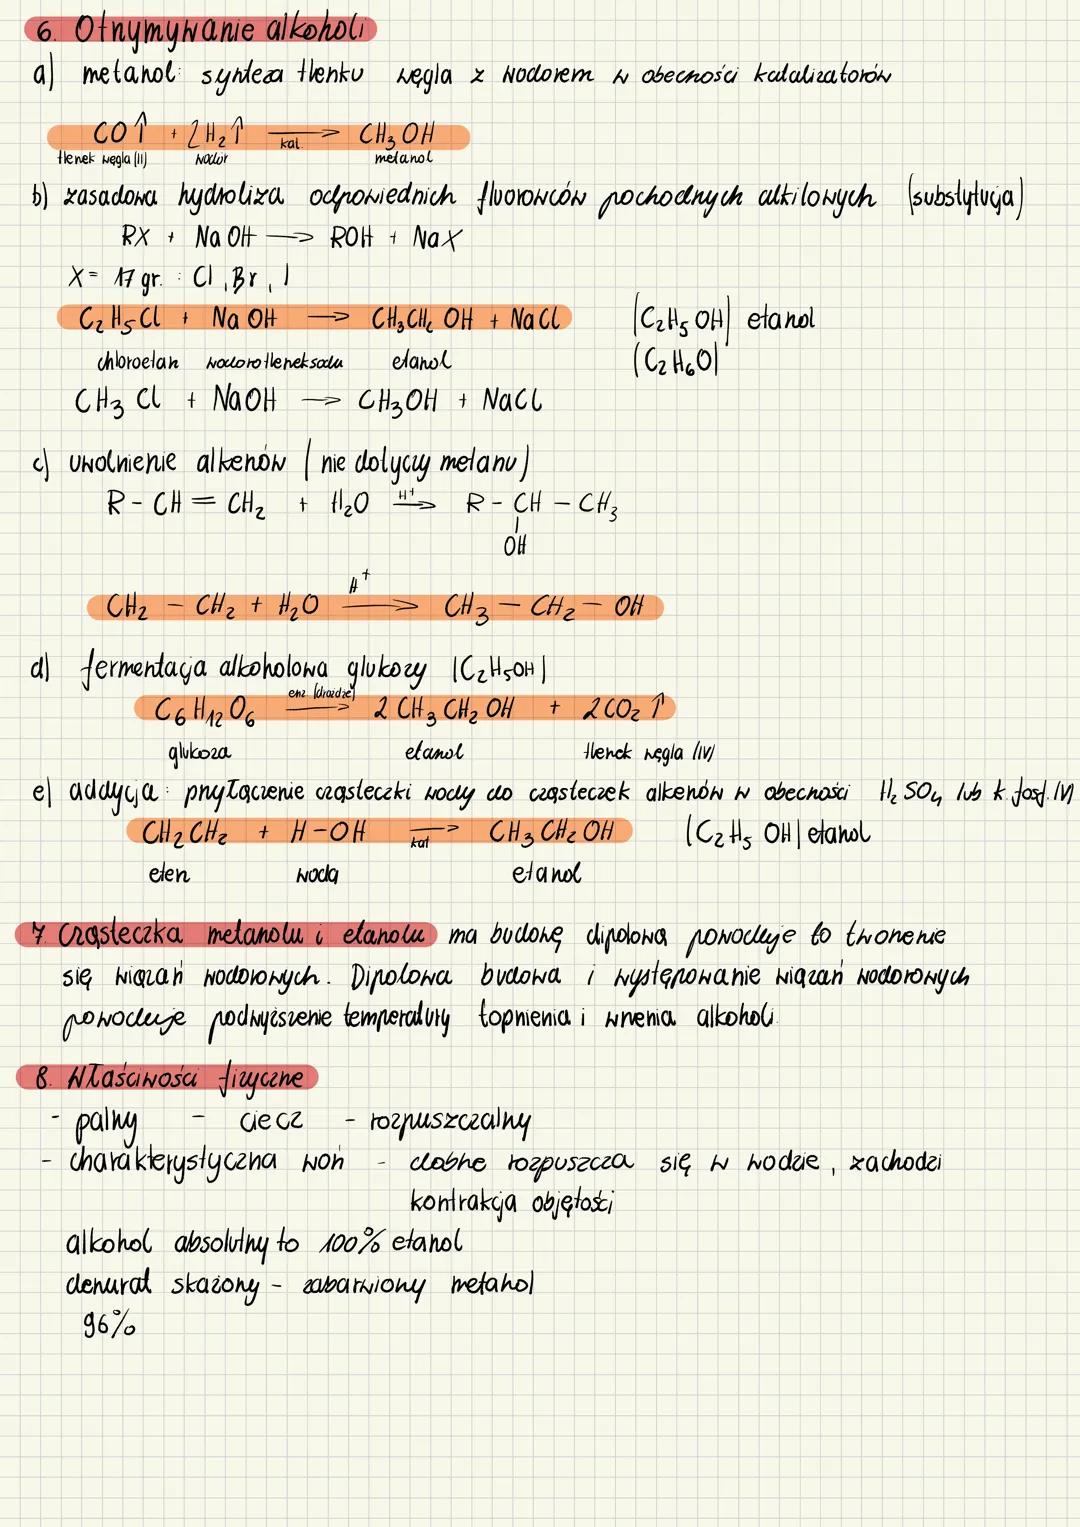 6. Otrzymywanie alkoholi
a) metanol: synteza tlenku węgla z wodorem w obecności katalizatorów
CO↑ + 2H₂↑ →kat. CH₃OH
tlenek węgla (II) wodór metanol
b) zasadowa hydroliza odpowiednich fluorowców pochodnych alkilowych (substytucja)
RX + NaOH → ROH + NaX
X = 17 gr. : Cl, Br, I
C₂H₅Cl + NaOH → CH₃CH₂OH + NaCl (C₂H₅OH) etanol
chloroetan wodorotleneksodu etanol (C₂H₆O)
CH₃Cl + NaOH → CH₃OH + NaCl
c) uwolnienie alkenów (nie dotyczy metanu)
R - CH = CH₂ + H₂O →H⁺ R - CH - CH₃
OH
CH₂ - CH₂ + H₂O →H⁺ CH₃ - CH₂ - OH
d) fermentacja alkoholowa glukozy (C₂H₅OH)
C₆H₁₂O₆ →enz. (drożdże) 2CH₃CH₂OH + 2CO₂↑
glukoza etanol tlenek węgla (IV)
e) addycja: przyłączenie cząsteczki wody do cząsteczek alkenów w obecności H₂SO₄ lub k. fosf. (V)
CH₂CH₂ + H-OH →kat CH₃CH₂OH (C₂H₅OH) etanol
eten woda etanol
7. Cząsteczka metanolu i etanolu ma budowę dipolową powoduje to tworzenie
się wiązań wodorowych. Dipolowa budowa i występowanie wiązań wodorowych
powoduje podwyższenie temperatury topnienia i wrzenia alkoholi.
8. Właściwości fizyczne
- palny - ciecz - rozpuszczalny
- charakterystyczna woń - dobrze rozpuszcza się w wodzie, zachodzi
kontrakcja objętości
alkohol absolutny to 100% etanol
denurat skażony - zabarwiony metanol
96%